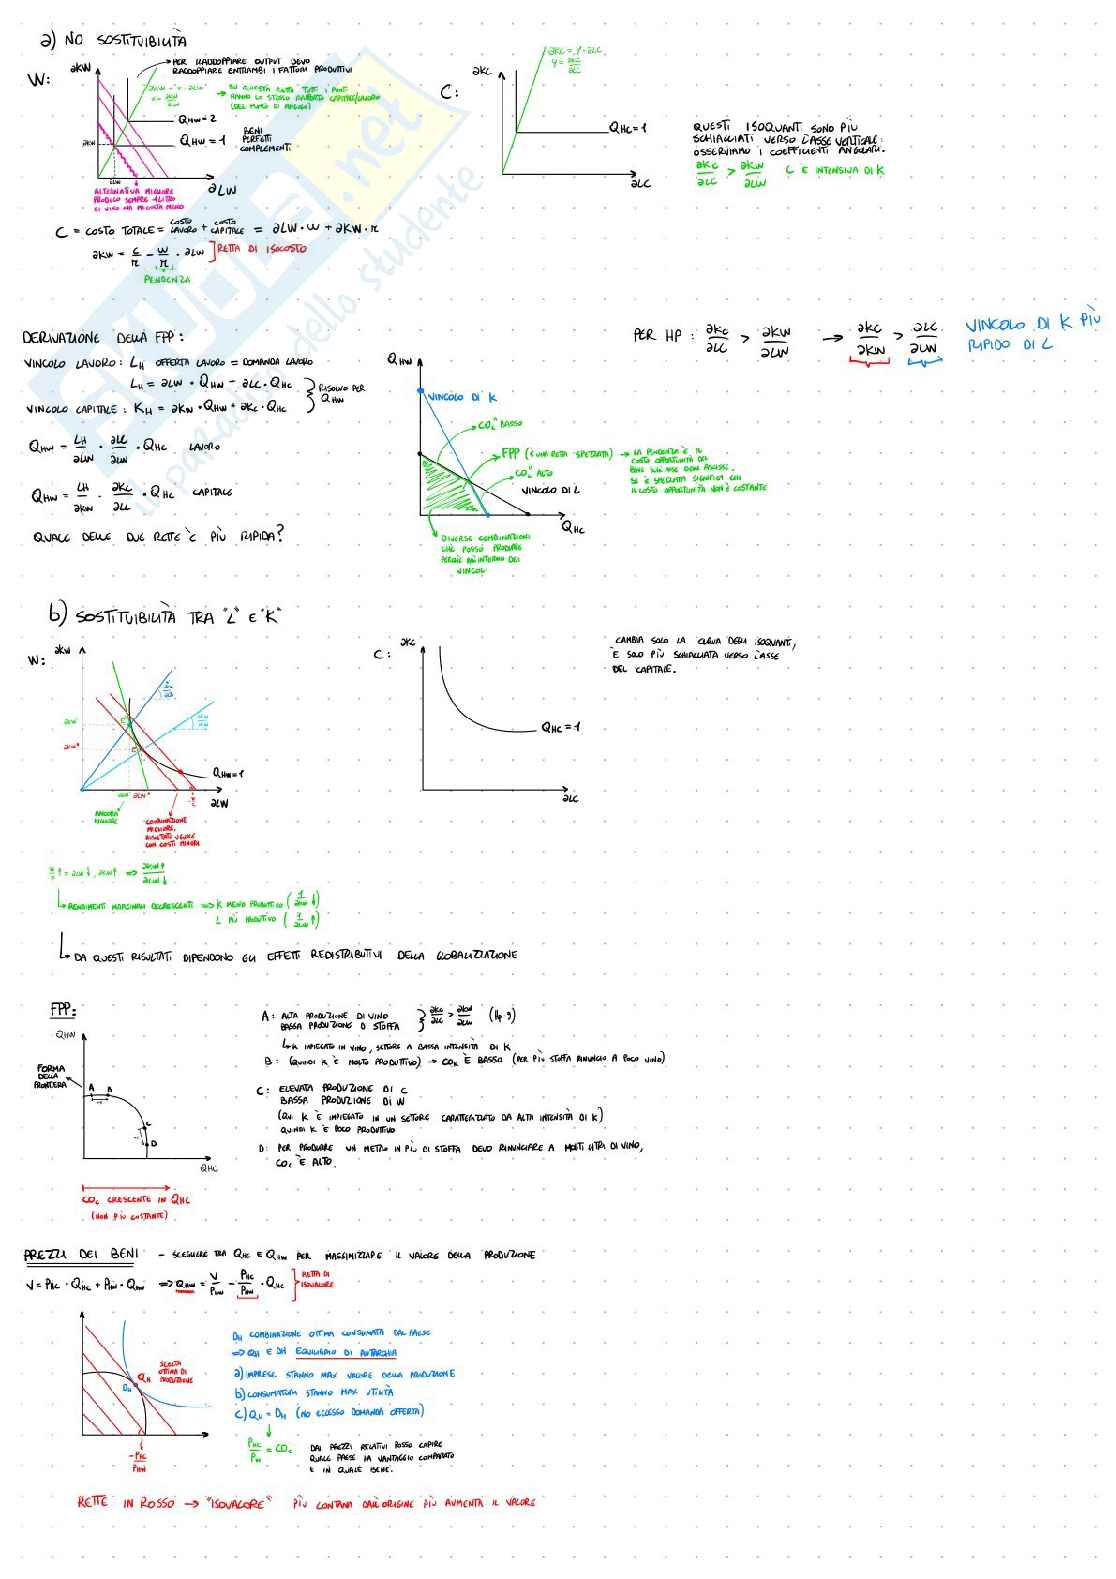 a) NO SOSTITUIBILITÀ
W:
aKW
PER RADDOPPIARE OUTPUT DEVO
RADDOPPIARE ENTRAMBI I FATTORI PRODUTTIVI
SU QUESTA RETTA TUTTI I PUNTI
HANNO LO STESSO RAPPORTO CAPITALE/LAVORO
QHW=2
QHW=1
BENI
PERFETTI
COMPLEMENTI
aKW
aLW
aLW
ALTERNATIVA MIGLIORE
PRODUCO SEMPRE 1 LITRO
DI VINO MA MI COSTA MENO
C:
aKC
QHC=1
aLC
QUESTI ISOQUANTI SONO PIÙ
SCHIACCIATI VERSO L'ASSE VERTICALE.
OSSERVIAMO I COEFFICIENTI ANGOLARI.
aKC/aLC > aKW/aLW C È INTENSIVA DI K
C = COSTO TOTALE = COSTO LAVORO + COSTO CAPITALE = aLW·W + aKW·r
aKW = C/r - W/r · aLW ] RETTA DI ISOCOSTO
PENDENZA
DERIVAZIONE DELLA FPP:
VINCOLO LAVORO: LH OFFERTA LAVORO = DOMANDA LAVORO
LH = aLW · QHW - aLC · QHC
VINCOLO CAPITALE: KH = aKW · QHW + aKC · QHC
RISOLVO PER
QHW
QHW = LH/aLW · aLC/aLW · QHC LAVORO
QHW = LH/aKW · aKC/aLC · QHC CAPITALE
QUALE DELLE DUE RETTE È PIÙ RIPIDA?
QHW
VINCOLO DI K
COC BASSO
FPP (È UNA RETTA SPEZZATA) → LA PENDENZA È IL
COSTO OPPORTUNITÀ DEL
BENE SULL'ASSE DELLE ASCISSE.
SE È SPEZZATA SIGNIFICA CHE
IL COSTO OPPORTUNITÀ NON È COSTANTE
COC ALTO
VINCOLO DI L
QHC
DIVERSE COMBINAZIONI
CHE POSSO PRODURRE
PERCHÉ ALL'INTERNO DEI
VINCOLI
PER HP: aKC/aLC > aKW/aLW → aKC/aKW > aLC/aLW
VINCOLO DI K PIÙ
RIPIDO DI L
b) SOSTITUIBILITÀ TRA "L" E "K"
W:
aKW
QHW=1
aLW
ANCORA
MIGLIORE
COMBINAZIONE
MIGLIORE,
CON COSTI MINORI
C:
aKC
QHC=1
aLC
CAMBIA SOLO LA CURVA DEGLI ISOQUANTI,
È SOLO PIÙ SCHIACCIATA VERSO L'ASSE
DEL CAPITALE.
W/r ↑ = aLW ↓, aKW ↑ ⇒ aKW↑/aLW↓
RENDIMENTI MARGINALI DECRESCENTI ⇒ K MENO PRODUTTIVO (1/aKW ↓)
L PIÙ PRODUTTIVO (1/aLW ↑)
DA QUESTI RISULTATI DIPENDONO GLI EFFETTI REDISTRIBUTIVI DELLA GLOBALIZZAZIONE
FPP:
QHW
FORMA
DELLA
FRONTIERA
A B
C
D
QHC
COC CRESCENTE IN QHC
(NON PIÙ COSTANTE)
A: ALTA PRODUZIONE DI VINO
BASSA PRODUZIONE DI STOFFA
} aKC/aLC > aKW/aLW (Hp. 9)
K IMPIEGATO IN VINO, SETTORE A BASSA INTENSITÀ DI K
B: (QUINDI K È MOLTO PRODUTTIVO) → COC È BASSO (PER PIÙ STOFFA RINUNCIO A POCO VINO)
C: ELEVATA PRODUZIONE DI C
BASSA PRODUZIONE DI W
(QUI K È IMPIEGATO IN UN SETTORE CARATTERIZZATO DA ALTA INTENSITÀ DI K)
QUINDI K È POCO PRODUTTIVO
D: PER PRODURRE UN METRO IN PIÙ DI STOFFA DEVO RINUNCIARE A MOLTI LITRI DI VINO,
COC È ALTO.
PREZZI DEI BENI - SCEGLIERE TRA QHC E QHW PER MASSIMIZZARE IL VALORE DELLA PRODUZIONE
V = PHC · QHC + PHW · QHW ⇒ QHW = V/PHW - PHC/PHW · QHC
RETTA DI
ISOVALORE
SCELTA
OTTIMA DI
PRODUZIONE
QH
DH
-PHC/PHW
DH COMBINAZIONE OTTIMA CONSUMATA DAL PAESE
⇒ QH E DH EQUILIBRIO DI AUTARCHIA
a) IMPRESE STANNO MAX VALORE DELLA PRODUZIONE
b) CONSUMATORI STANNO MAX UTILITÀ
c) QH = DH (NO ECCESSO DOMANDA OFFERTA)
PHC/PHW = COC
DAI PREZZI RELATIVI POSSO CAPIRE
QUALE PAESE HA VANTAGGIO COMPARATO
E IN QUALE BENE.
RETTE IN ROSSO → "ISOVALORE" PIÙ LONTANA DALL'ORIGINE PIÙ AUMENTA IL VALORE